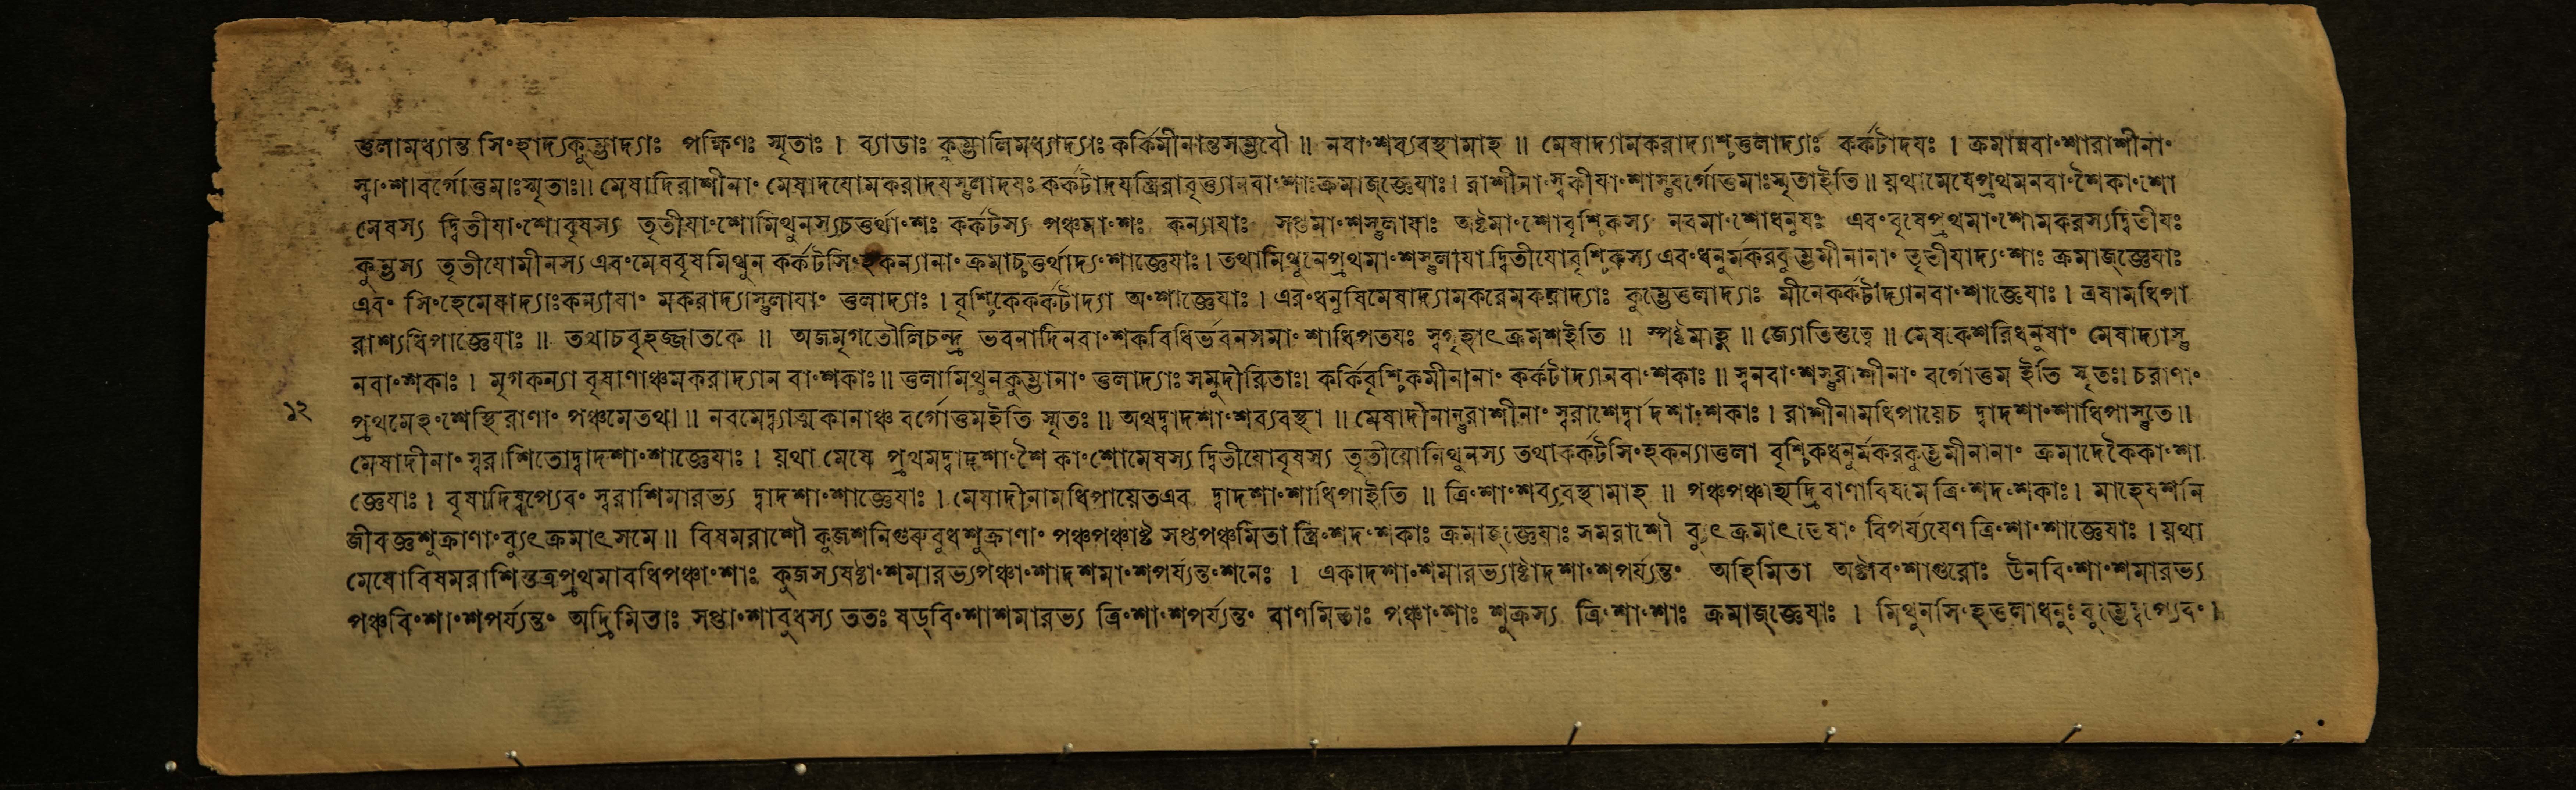 তুলামধ্যান্ত সিংহাদ্যকুম্ভাদ্যাঃ পক্ষিণঃ স্মৃতাঃ । ব্যাডাঃ কুম্ভালিমধ্যাদ্যাঃ কর্কিমীনান্তসম্ভবৌ ॥ নবাংশব্যবস্থামাহ ॥ মেষাদ্যামকরাদ্যাশ্চতুলাদ্যাঃ কর্কটাদযঃ । ক্রমান্নবাংশারাশীনাং
স্বাংশাবর্গোত্তমাঃস্মৃতাঃ॥ মেষাদিরাশীনাং মেষাদযোমকরাদযস্তুলাদযঃ কর্কটাদযস্ত্রিরাবৃত্ত্যানবাংশাঃক্রমাজ্জ্ঞেযাঃ। রাশীনাংস্বকীযাংশাস্তুবর্গোত্তমাঃস্মৃতাইতি॥ যথামেষেপ্রথমনবাংশৈকাংশো
মেষস্য দ্বিতীযাংশোবৃষস্য তৃতীযাংশোমিথুনস্যচতুর্থাংশঃ কর্কটস্য পঞ্চমাংশঃ কন্যাযাঃ সপ্তমাংশস্তুলাযাঃ অষ্টমাংশোবৃশ্চিকস্য নবমাংশোধনুষঃ এবংবৃষেপ্রথমাংশোমকরস্যদ্বিতীযঃ
কুম্ভস্য তৃতীযোমীনস্য এবংমেষবৃষমিথুন কর্কটসিংহকন্যানাং ক্রমাচ্চতুর্থাদ্যংশাজ্ঞেযাঃ। তথামিথুনেপ্রথমাংশস্তুলাযা দ্বিতীযোবৃশ্চিকস্য এবংধনুর্মকরকুম্ভমীনানাং তৃতীযাদ্যংশাঃ ক্রমাজ্জ্ঞেযাঃ
এবং সিংহেমেষাদ্যাঃকন্যাযাং মকরাদ্যাস্তুলাযাং তুলাদ্যাঃ । বৃশ্চিকেকর্কটাদ্যা অংশাজ্ঞেযাঃ । এবংধনুষিমেষাদ্যামকরেমকরাদ্যাঃ কুম্ভেতুলাদ্যাঃ মীনেকর্কটাদ্যানবাংশাজ্ঞেযাঃ । ত্রষামধিপা
রাশ্যধিপাজ্ঞেযাঃ ॥ তথাচবৃহজ্জাতকে ॥ অজমৃগতৌলিচন্দ্র ভবনাদিনবাংশকবিধির্ভবনসমাংশাধিপতযঃ স্বগৃহাৎ ক্রমশইতি ॥ স্পষ্টমাহ ॥ জ্যোতিস্তত্বে ॥ মেষকেশরিধনুষাং মেষাদ্যাস্তু
নবাংশকাঃ । মৃগকন্যা বৃষাণাঞ্চমকরাদ্যান বাংশকাঃ॥ তুলামিথুনকুম্ভানাং তুলাদ্যাঃ সমুদীরিতাঃ। কর্কিবৃশ্চিকমীনানাং কর্কটাদ্যানবাংশকাঃ ॥ স্বনবাংশস্তুরাশীনাং বর্গোত্তম ইতি স্মৃতঃ। চরাণাং
১২
প্রথমেহংশেস্থিরাণাং পঞ্চমেতথা ॥ নবমেদ্ব্যাত্মকানাঞ্চ বর্গোত্তমইতি স্মৃতঃ ॥ অথদ্বাদশাংশব্যবস্থা ॥ মেষাদীনান্তুরাশীনাং স্বরাশের্দ্বাদশাংশকাঃ । রাশীনামধিপাযেচ দ্বাদশাংশাধিপাস্তুতে॥
মেষাদীনাং স্বরাশিতোদ্বাদশাংশাজ্ঞেযাঃ । যথা মেষে প্রথমদ্বাদশাংশৈ কাংশোমেষস্য দ্বিতীযোবৃষস্য তৃতীযোমিথুনস্য তথাকর্কটসিংহকন্যাতুলা বৃশ্চিকধনুর্মকরকুম্ভমীনানাং ক্রমাদেকৈকাংশা
জ্ঞেযাঃ । বৃষাদিষ্বপ্যেবং স্বরাশিমারভ্য দ্বাদশাংশাজ্ঞেযাঃ । মেষাদীনামধিপাযেতএব দ্বাদশাংশাধিপাইতি ॥ ত্রিংশাংশব্যবস্থামাহ ॥ পঞ্চপঞ্চাহ্যদ্রিবাণাবিষমে ত্রিংশদংশকাঃ। মাহেযশনি
জীবজ্ঞশুক্রাণাংব্যুৎক্রমাৎসমে॥ বিষমরাশৌ কুজশনিগুরুবুধশুক্রাণাং পঞ্চপঞ্চাষ্ট সপ্তপঞ্চমিতা স্ত্রিংশদংশকাঃ ক্রমাজ্জ্ঞেযাঃ সমরাশৌ ব্যুৎক্রমাৎতেষাং বিপর্য্যযেণ ত্রিংশাংশাজ্ঞেযাঃ । যথা
মেষোবিষমরাশিস্তত্রপ্রথমাবধিপঞ্চাংশাঃ কুজস্যষষ্ঠাংশমারভ্যপঞ্চাংশাদশমাংশপর্য্যন্তংশনেঃ । একাদশাংশমারভ্যাষ্টাদশাংশপর্য্যন্তং অহিমিতা অষ্টাবংশাগুরোঃ উনবিংশাংশমারভ্য
পঞ্চবিংশাংশপর্য্যন্তং অদ্রিমিতাঃ সপ্তাংশাবুধস্য ততঃ ষড্বিংশাশমারভ্য ত্রিংশাংশপর্য্যন্তং বাণমিতাঃ পঞ্চাংশাঃ শুক্রস্য ত্রিংশাংশাঃ ক্রমাজ্জ্ঞেযাঃ । মিথুনসিংহতুলাধনুঃকুম্ভেষ্বপ্যেবং।